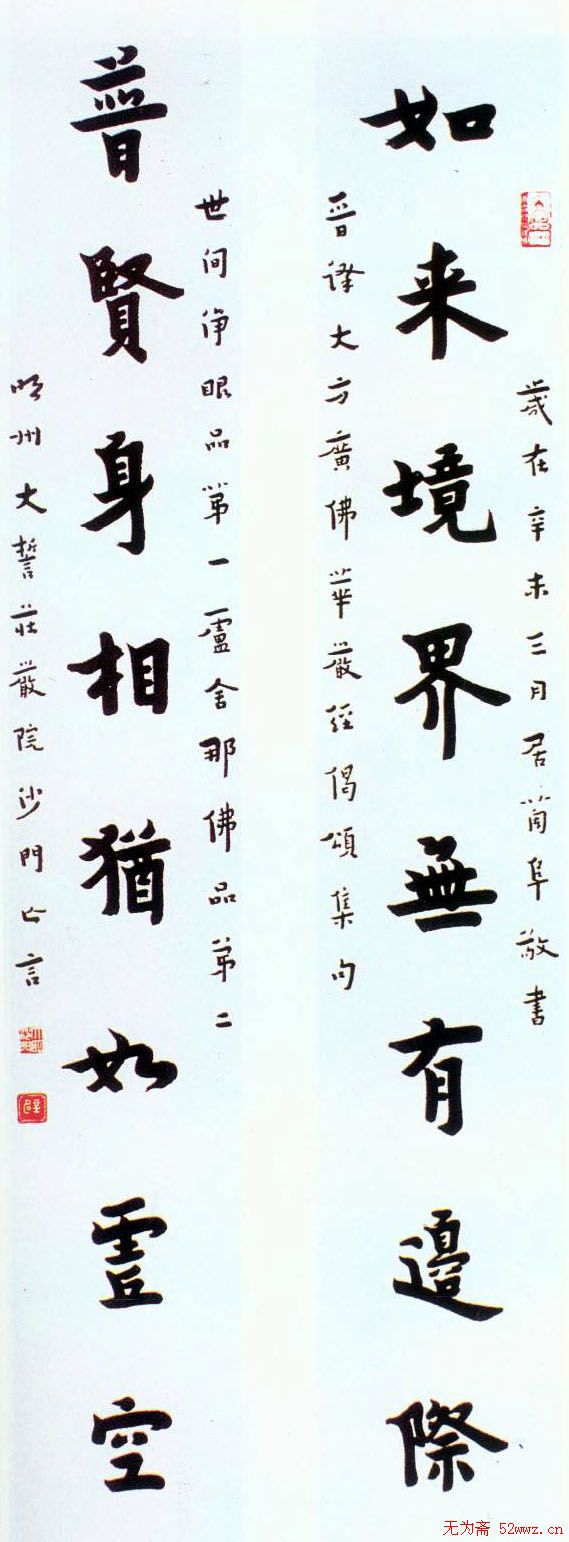 歲在辛未三月居蕳阜敬書
如来境界無有邊際
晉譯大方廣佛華嚴經偈頌集句
世间淨眼品第一盧舍那佛品第二
普賢身相猶如虛空
明州大誓莊嚴院沙門亡言
无为斋 52wwz.cn